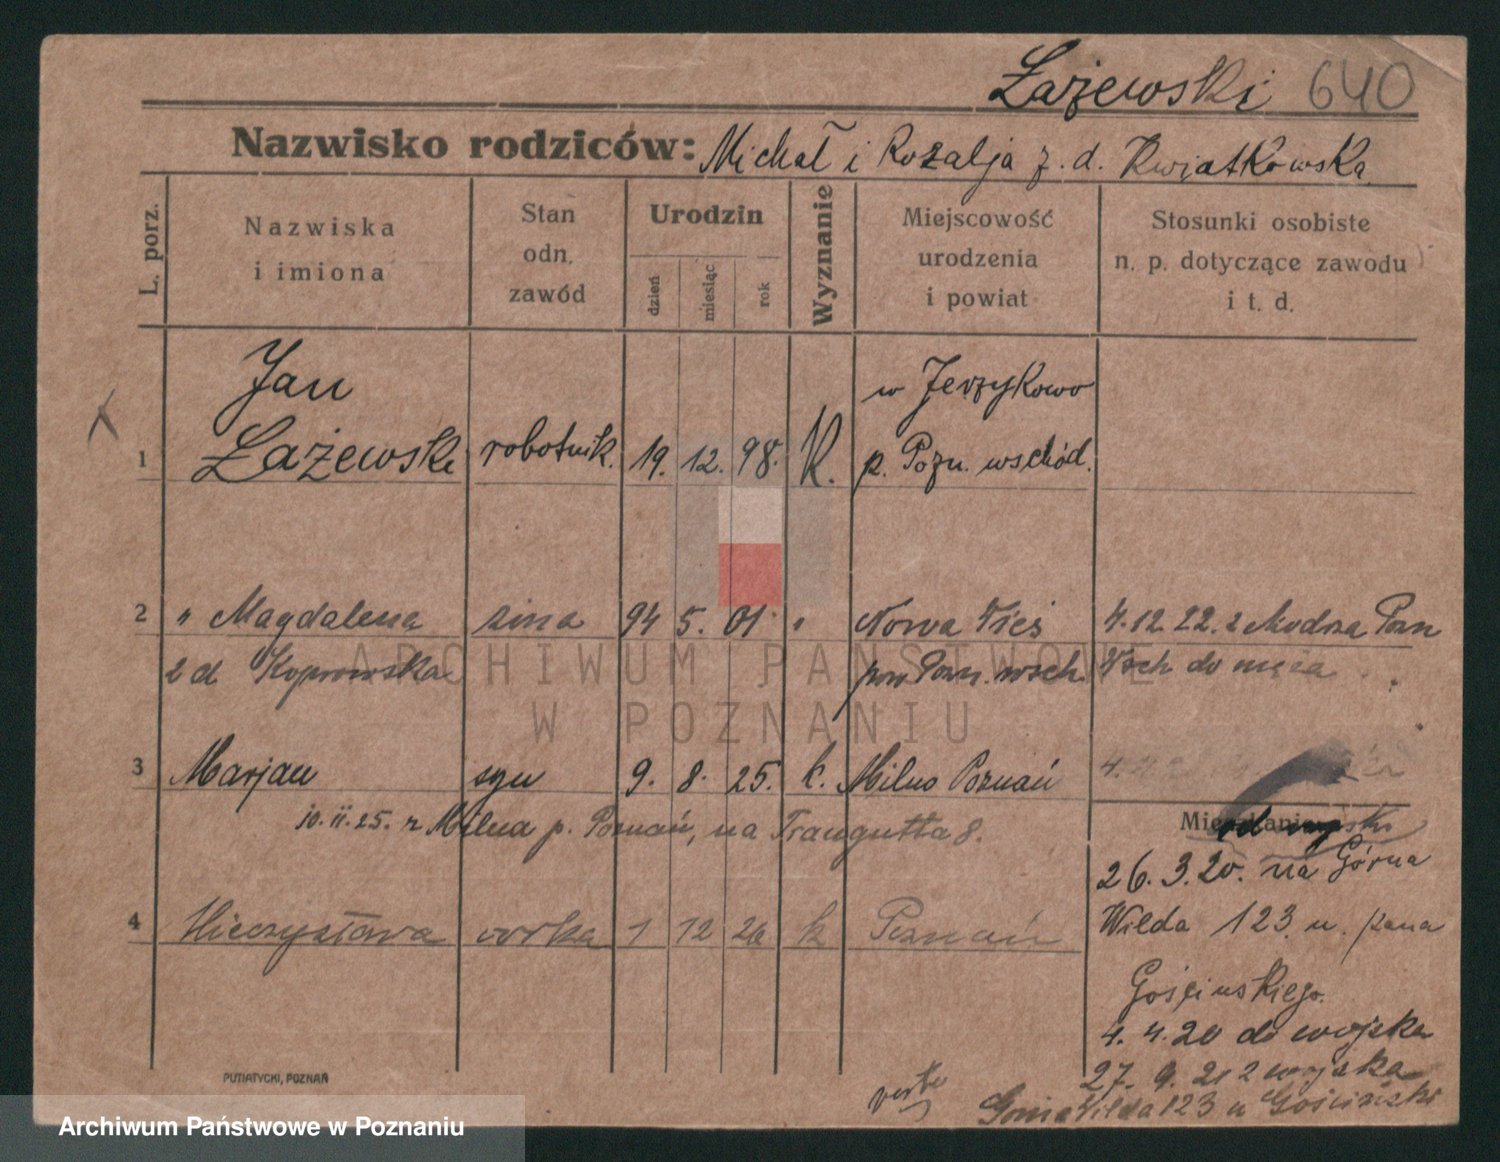 Łażewski 640
Nazwisko rodziców: Michał i Rozalja z. d. Kwiatkowska
L. porz.
Nazwiska
i imiona
Stan
odn.
zawód
Urodzin
dzień
miesiąc
rok
Wyznanie
Miejscowość
urodzenia
i powiat
Stosunki osobiste
n. p. dotyczące zawodu
i t. d.
Jan w Jerzykowo
1 Łażewski robotnik. 19. 12. 98. K. p. Pozn. wschód.
2 " Magdalena żona 94 5. 01. " Nowa Wieś 4.12.22. z Modrza Pozn
z d Koprowska pow Pozn. wsch. Wsch do męża
3 Marjan syn 9. 8. 25. k. Milno Poznań
10.11.25. z Milna p. Poznań, na Traugutta 8.
Mieszkanie
od wojska
26.3.20. na Górna
4 Mieczysława córka 1 12 26 k Poznań
Wilda 123 u. pana
Gościńskiego.
4.4.20 do wojska
27.9.21 z wojska
Górna Wilda 123 u Gościński
verte
PUTIATYCKI, POZNAŃ
ARCHIWUM PAŃSTWOWE
W POZNANIU
Archiwum Państwowe w Poznaniu